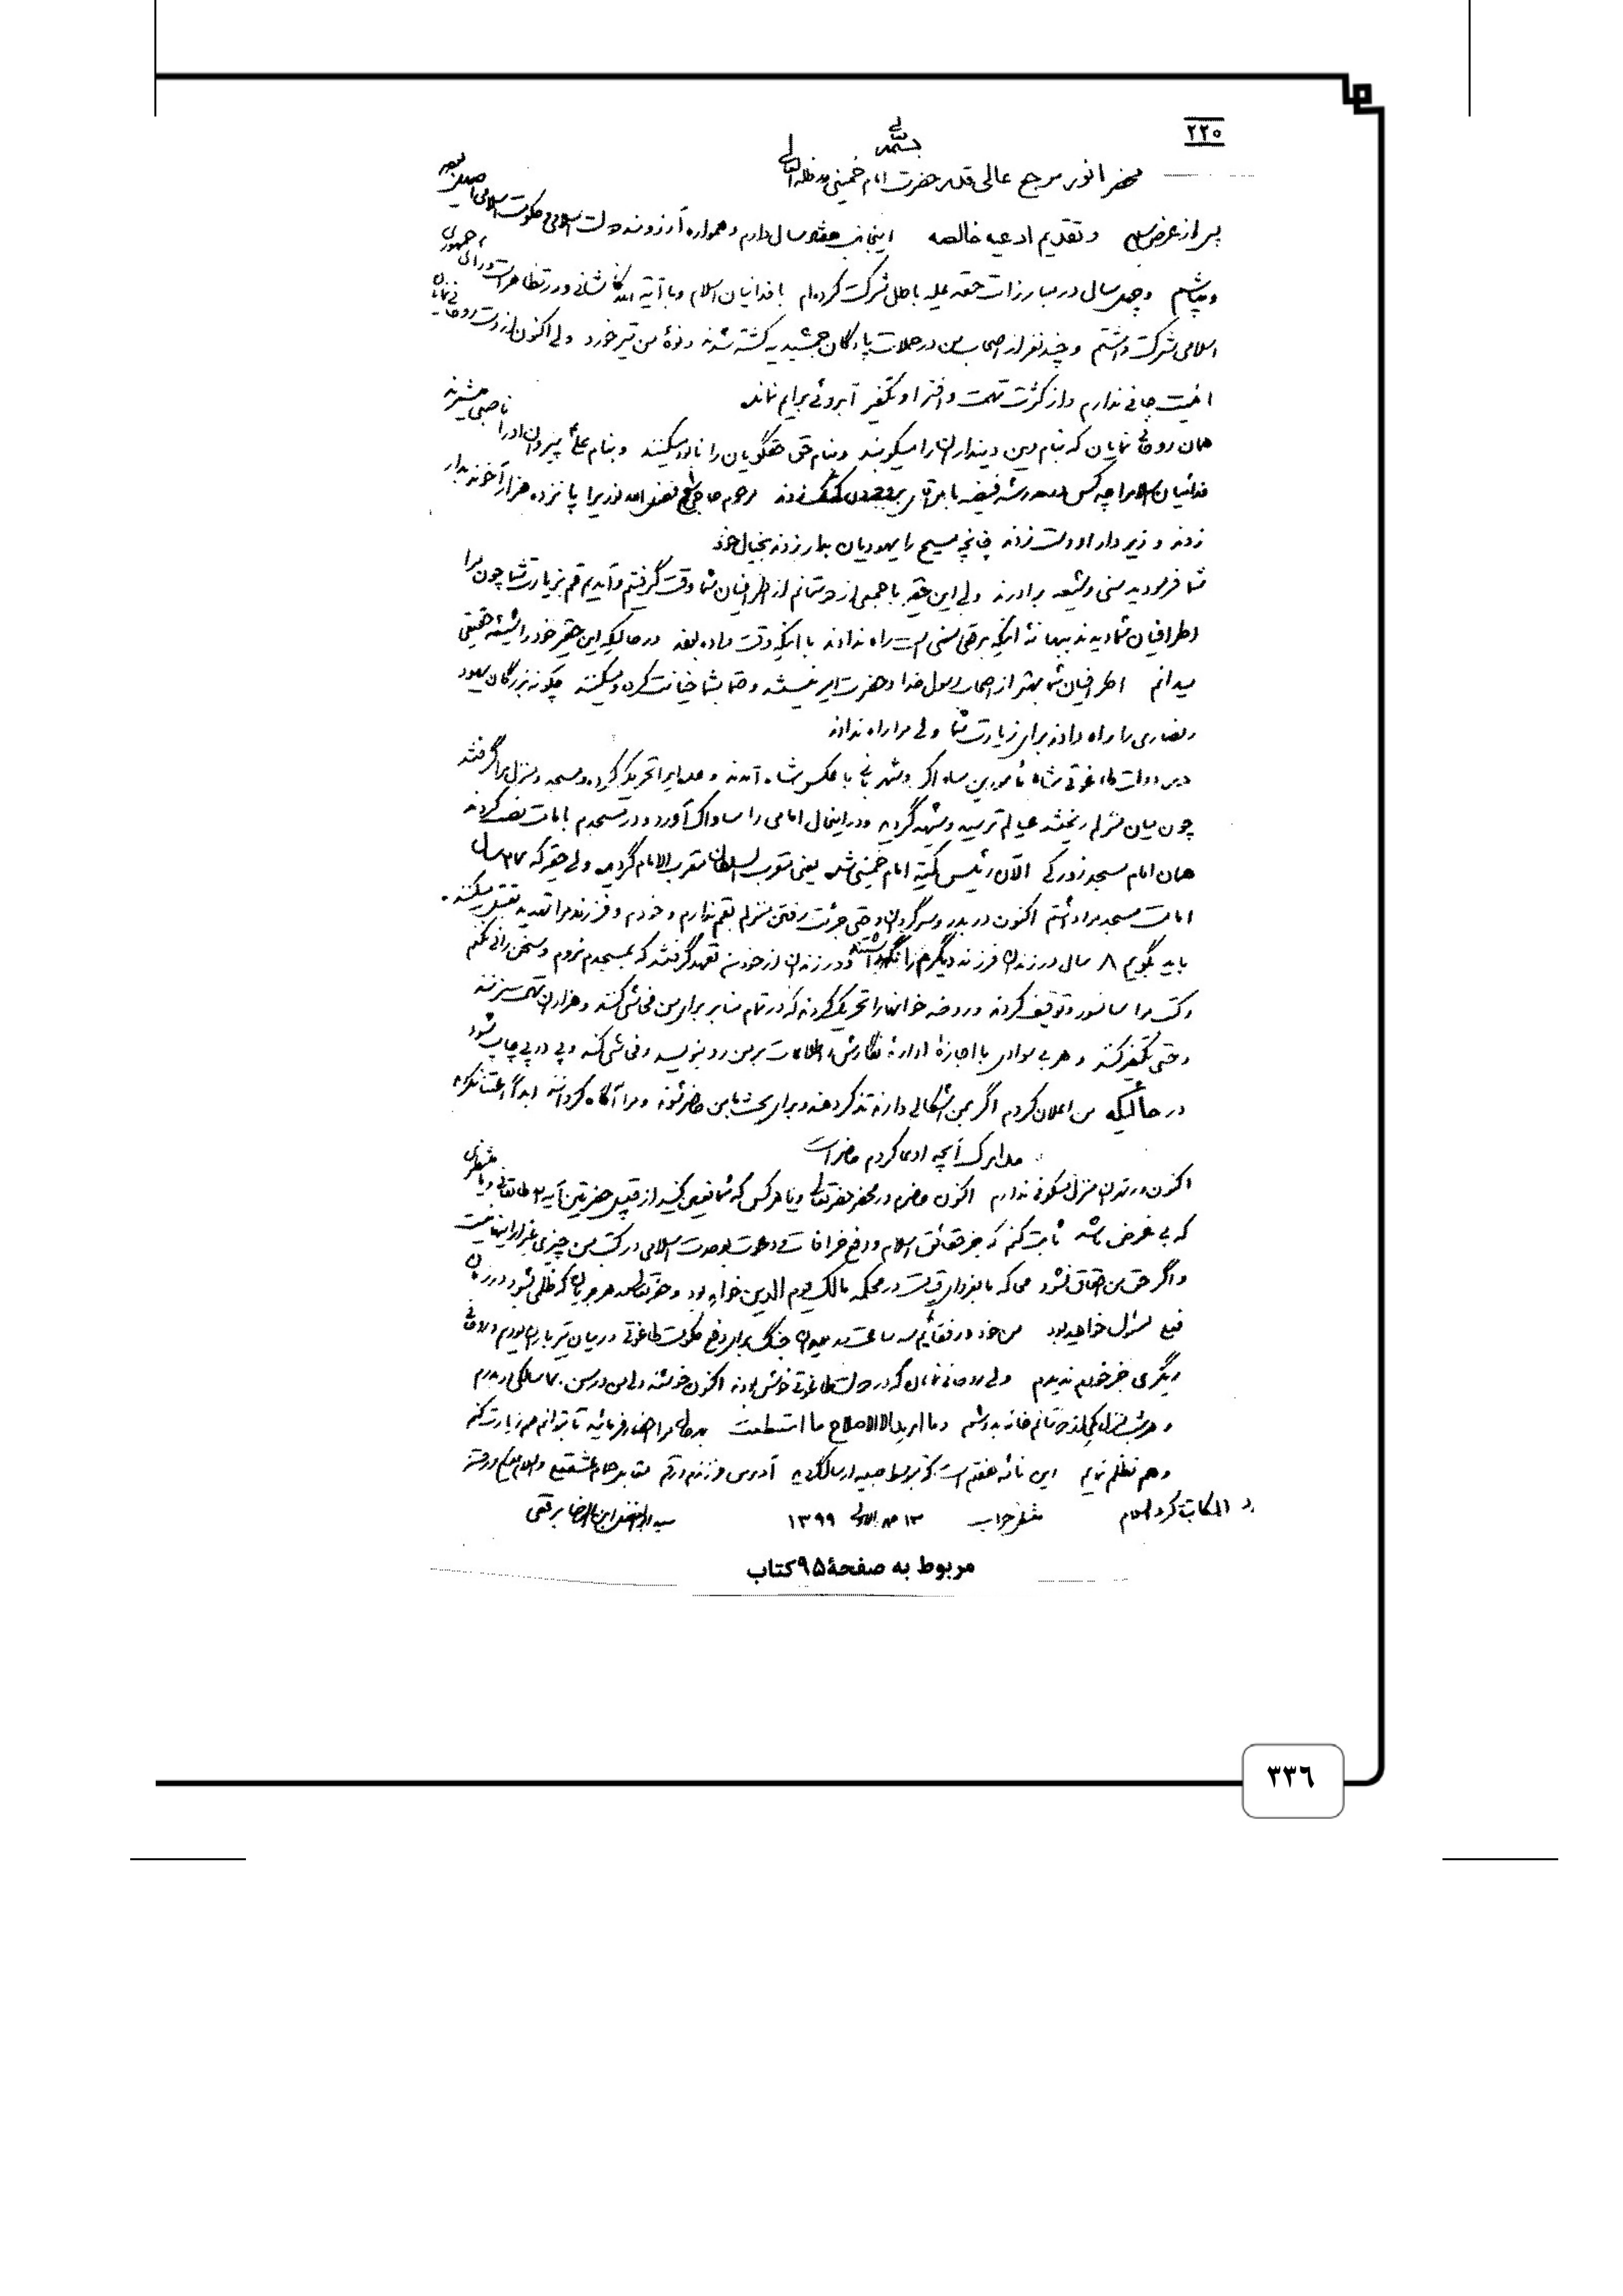 ۲۲۰
بسمه تعالی
محضر انور مرجع عالی قدر حضرت امام خمینی مد ظله العالی
پس از عرض سلام و تقدیم ادعیه خالصه اینجانب هفتاد سال دارم و همواره آرزومند دولت اسلامی و حکومت اسلامی اصیل بوده
و میباشم و چهل سال در مبارزات حقه علیه باطل شرکت کرده‌ام با فدائیان اسلام و با آیة الله کاشانی و در تظاهرات و رأی جمهوری
اسلامی شرکت داشتم و چند نفر از اصحاب من در حملات پادگان جمشیدیه کشته شدند و نوهٔ من تیر خورد ولی اکنون از دست روحانی نمایان
امنیت جانی ندارم و از کثرت تهمت و افترا و تکفیر آبروئی برایم نمانده
همان روحانی نمایان که بنام دین دینداران را میکوبند و بنام حق حقگویان را نابود میکنند و بنام علی پیروان او را ناصبی میشمرند
فدائیان اسلام را چه کس در مدرسه فیضیه با کتک زدند مرحوم حاج شیخ فضل الله نوری را پانزده هزار آخوند بدار
زدند و زیر دار او دست زدند چنانچه مسیح را یهودیان بدار زدند بخیال خود
شما فرمودید سنی و شیعه برادرند ولی این حقیر با جمعی از دوستانم از اطرافیان شما وقت گرفتیم و آمدیم قم بزیارت شما چون مرا
اطرافیان شما دیدند ببهانهٔ اینکه برقعی سنی است راه ندادند با اینکه وقت داده بودند در حالیکه این حقیر خود را شیعهٔ حقیقی
میدانم اطرافیان شما بهتر از اصحاب رسول خدا و حضرت امیر نیستند و حتما بشما خیانت کرده و میکنند چگونه بزرگان یهود
و نصاری را راه دادند برای زیارت شما ولی مرا راه ندادند
در دولت طاغوتی شاه مأمورین ساواک و شهربانی با عکس شاه آمدند و عده‌ای را تحریک کرده و مسجد و منزل مرا گرفتند
چون میان منزلم ریختند عیالم ترسید و شهید گردید و در اینحال امامی را ساواک آورد و در مسجدم بامامت نصب کردند
همان امام مسجد زورکی الآن رئیس کمیتهٔ امام خمینی شده یعنی مقرب السلطان مقرب الامام گردیده ولی حقیر که ۳۷ سال
امامت مسجد را داشتم اکنون در بدر و سرگردان و حتی جرئت رفتن منزلم بقم ندارم و خودم و فرزندم را تهدید بقتل میکنند.
باید بگویم ۸ سال در زندان فرزند دیگرم را نگهداشتند و در زندان از خود من تعهد گرفتند که بمسجدم نروم و سخنرانی نکنم
و کتب مرا سانسور و توقیف کردند و روضه خوانها را تحریک کردند که در تمام منابر برای من فحاشی کنند و هزاران تهمت بزنند
و حتی تکفیر کنند و هر بی سوادی با اجازهٔ ادارهٔ نگارش و اطلاعات بر من رد بنویسد و فحاشی کند و پی در پی چاپ شود
در حالیکه من اعلان کردم اگر بمن اشکالی دارند تذکر دهند و برای بحث با من حاضر شوند و مرا آگاه کردانند ابداً اعتنا نکردند
مدارک آنچه ادعا کردم حاضر است
اکنون در تهران منزل مسکونی ندارم اکنون حاضرم در محضر حضرتعالی و یا هر کس که شما تعیین کنید از قبیل حضرتین آیة الله طالقانی و یا منتظری
که بی غرض باشد ثابت کنم که جز حقائق اسلام و دفع خرافات و دعوت بوحدت اسلامی در کتب من چیزی غیر از اینها نیست
و اگر حق من احقاق نشود محاکمه ما بفردای قیامت در محکمه مالک یوم الدین خواهد بود و حضرتعالی هر جریانی که ظلمی بشود در زمان
فیع مسئول خواهید بود من خود در میدان جنگ برای رفع حکومت طاغوتی در میان تیر باران بودم و روحانی
دیگری جز خودم ندیدم ولی روحانی نمایان که در دولت طاغوتی خوش بودند اکنون خوشند ولی من در سن ۷۰ سالگی در بدرم
و هر شب منزل یکی از دوستانم خانه بدوشم و ما ارید الا الاصلاح ما استطعت مرا احضار فرمائید تا بتوانم هم زیارت کنم
و هم تظلم نمایم این نامهٔ هفتم است که توسط ارسال گردید آدرس فرزندم قم
المکاتبة کرد السلام منتظر جواب ۱۳ ۱۳۹۹ سید ابوالفضل ابن الرضا برقعی
مربوط به صفحهٔ ۹۵ کتاب
۳۳۶